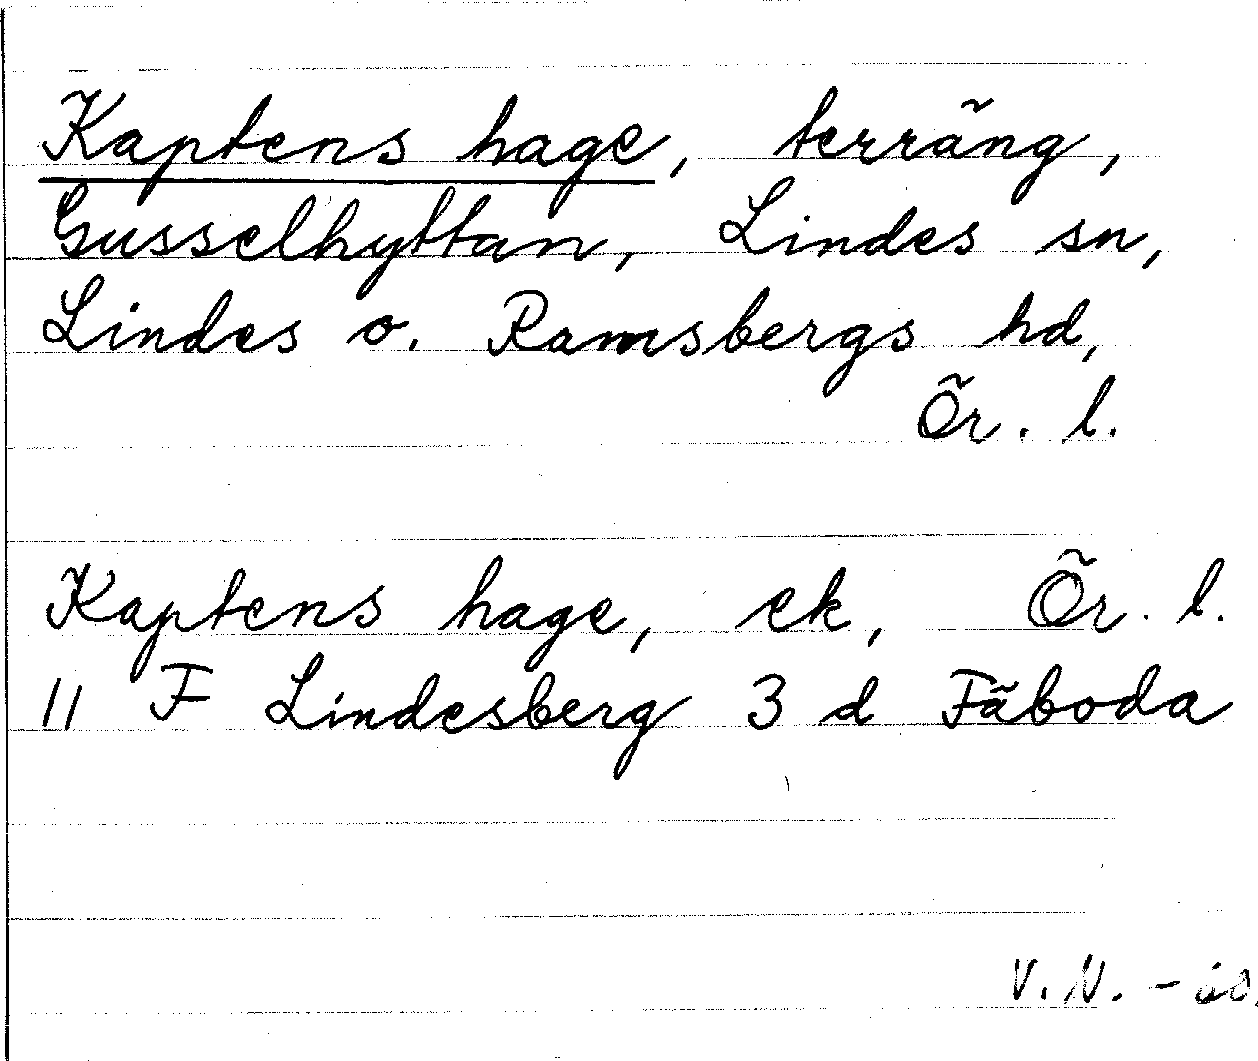 Kaptens hage, terräng,
Gusselhyttan, Lindes sn,
Lindes o. Ramsbergs hd,
Ör. l.
Kaptens hage, ek, Ör. l.
11 F Lindesberg 3 d Fäboda
V. N. -